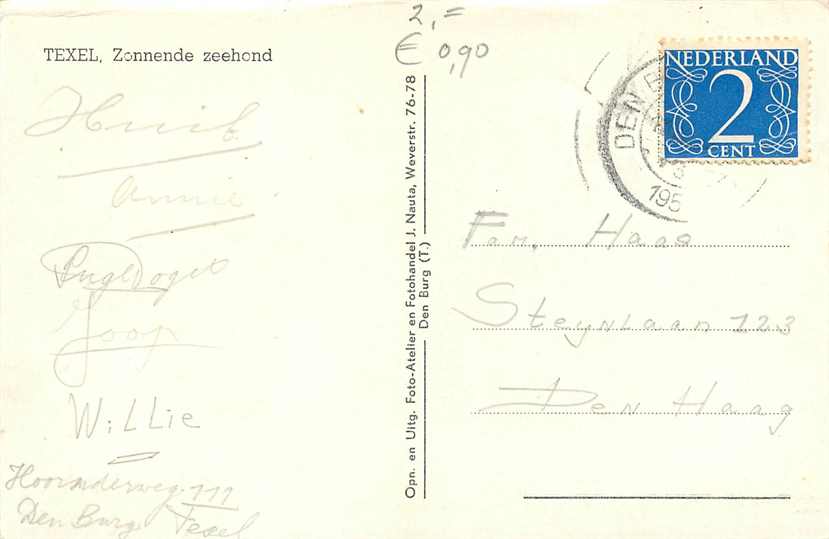 2,=
€ 0,90
TEXEL, Zonnende zeehond
Huib
Annie
Joop
Willie
Hoornderweg 111
Den Burg Texel
Opn. en Uitg. Foto-Atelier en Fotohandel J. Nauta, Weverstr. 76-78
Den Burg (T.)
NEDERLAND
2
CENT
DEN B
195
Fam. Haag
Steynlaan 123
Den Haag